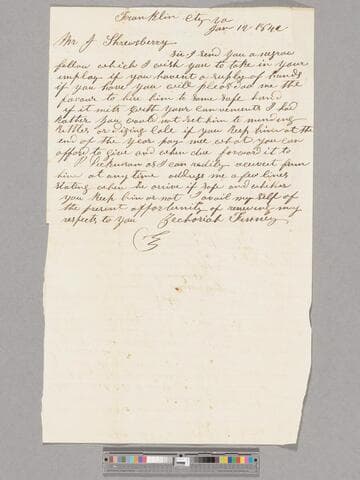 Franklin Cty Va
Jan 12 184
Mr J Shrewsberry
Sir I send you a negroe
fellow which I wish you to take in your
employ if you havent a suply of hands
if you have you will please do me the
favour to hire him to some safe hand
if it meets with your convenience I had
rather you would not set him to minding
kettles or diging cole if you keep him at the
end of the year pay me what you can
afford to give and when due forward it to
I as I can redily receive it from
him at any time address me a few lines
stating when he arive if safe and whither
you keep him or not I avail my self of
the present opportunity of renewing my
respects to you Zechoriah Finney